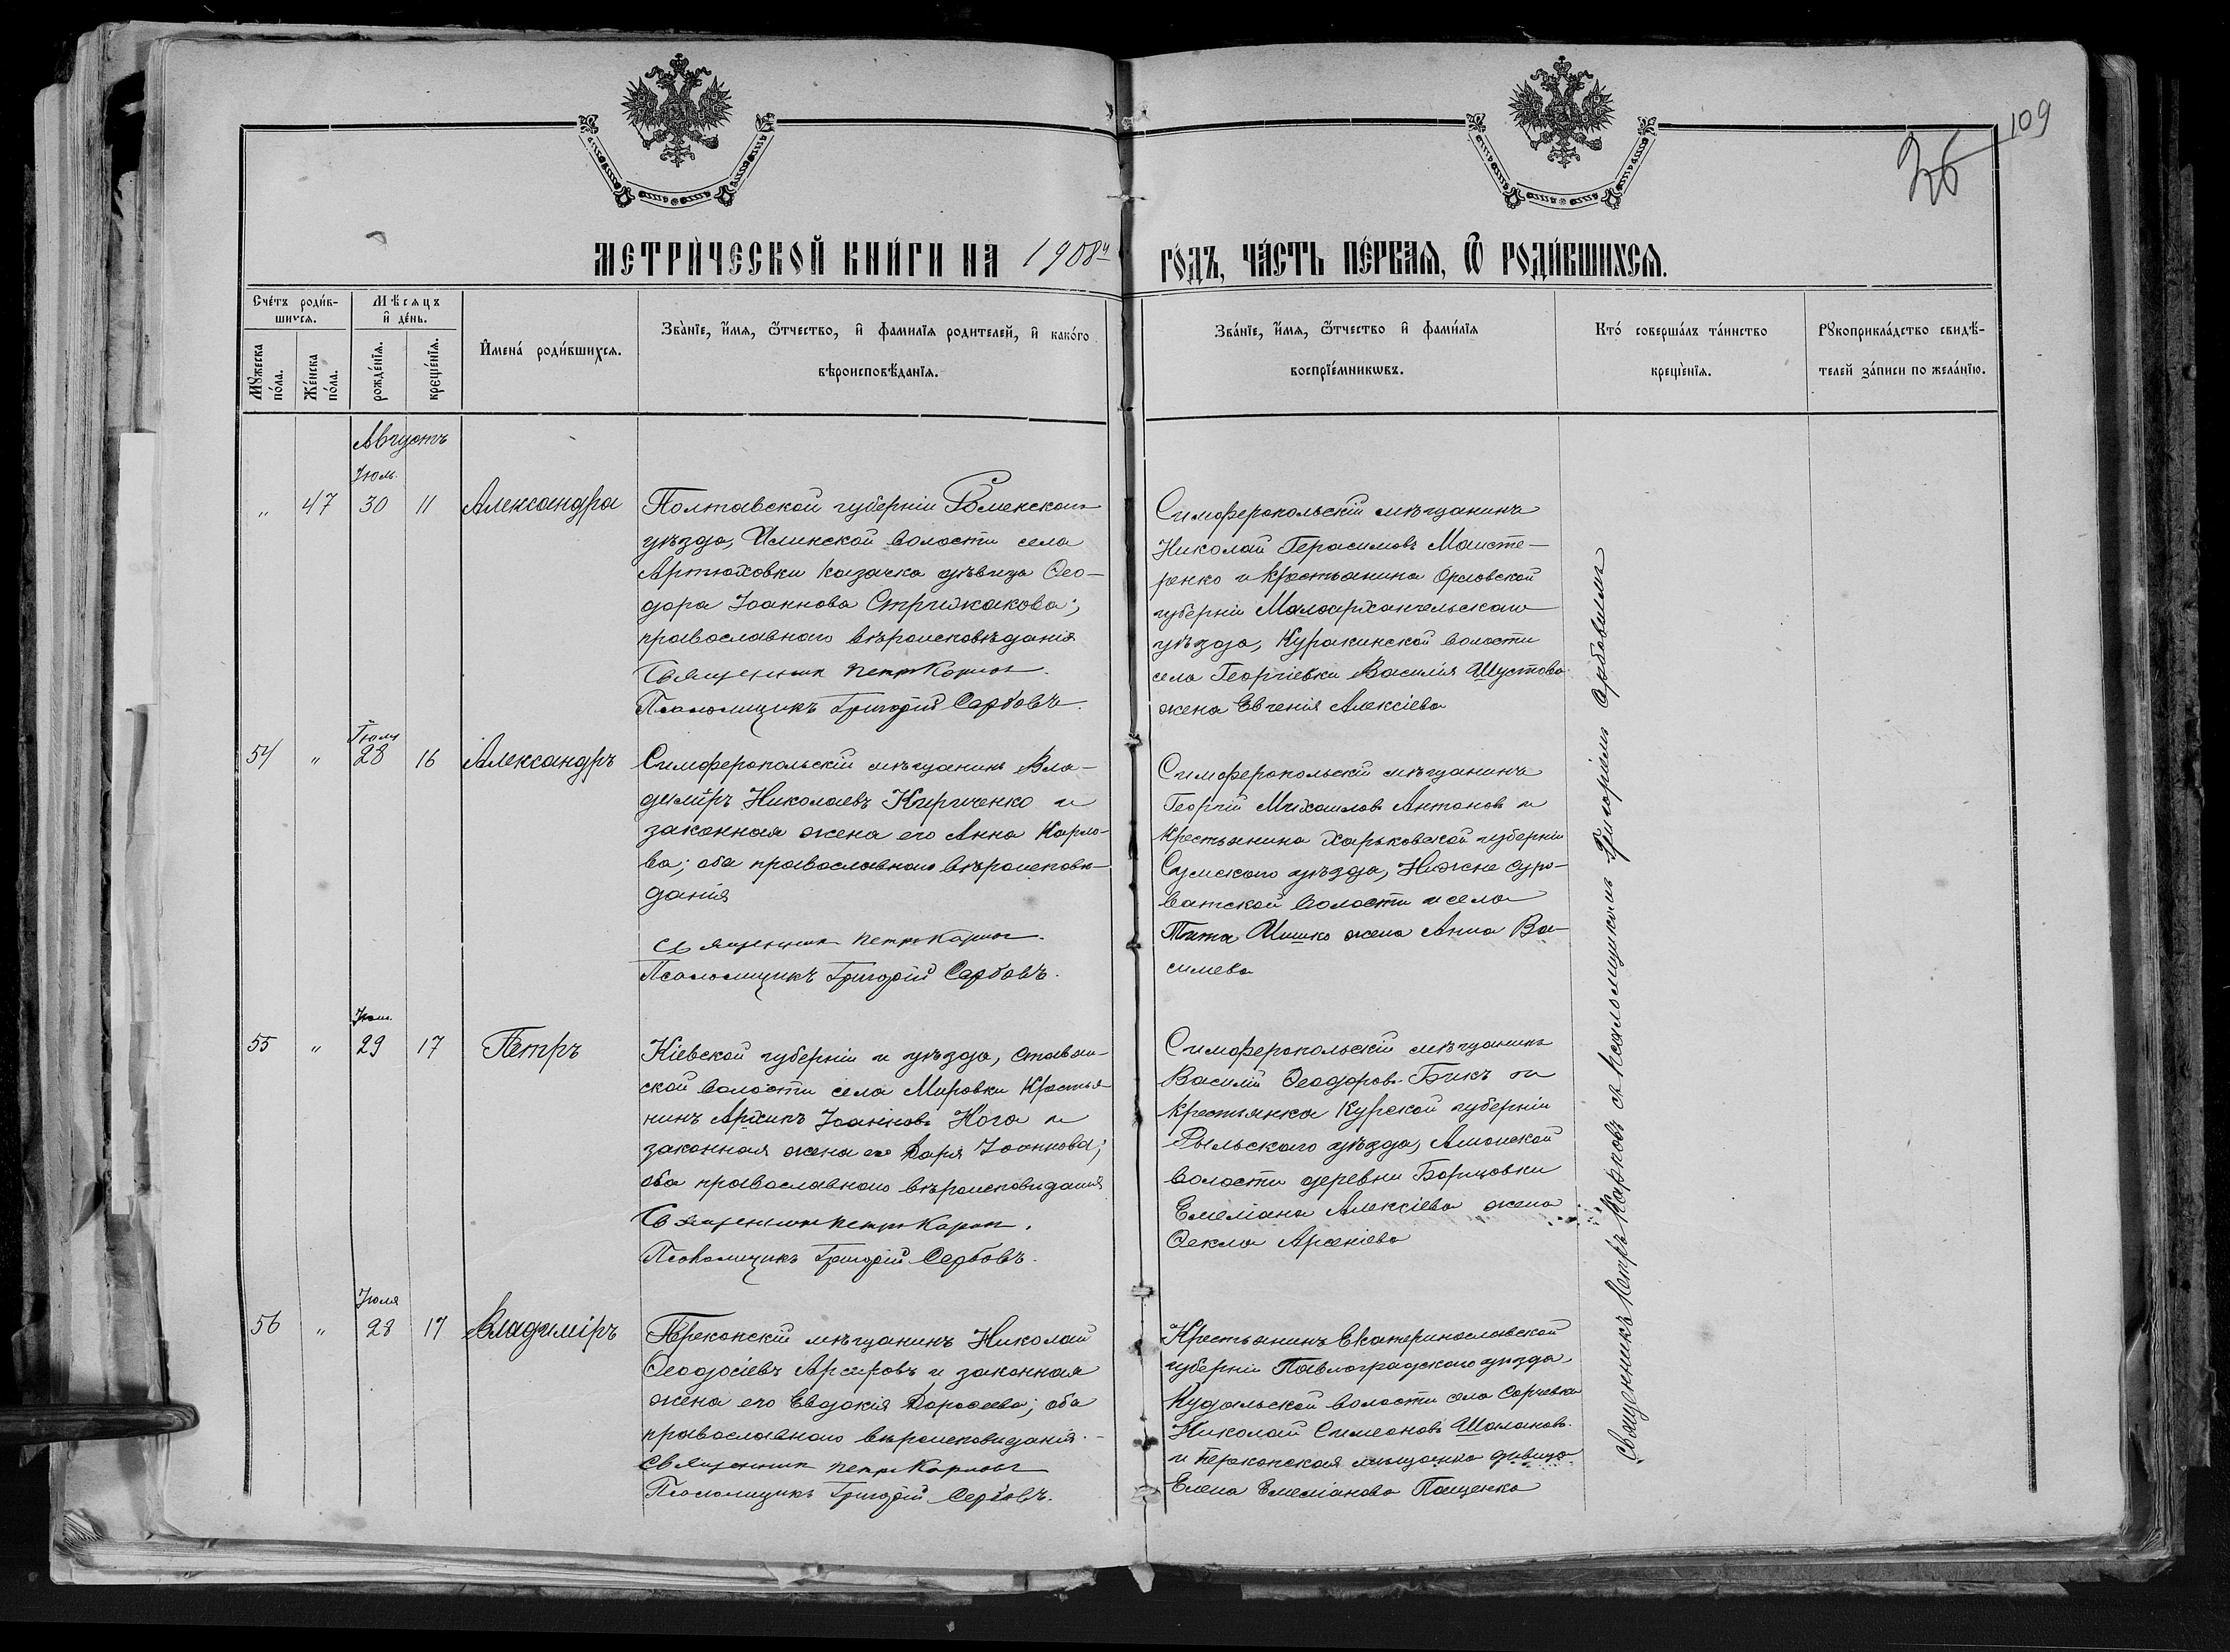 109
26
МЕТРИЧЕСКОЙ КНИГИ НА 1908й ГОДЪ, ЧАСТЬ ПЕРВАЯ, Ѿ РОДИВШИХСЯ.
Счетъ родив-
шихся.
Мужеска
пола.
Женска
пола.
Мѣсяцъ
и день.
рожденія.
крещенія.
Имена родившихся.
Званіе, имя, ѿтчество, и фамилія родителей, и какого
вѣроисповѣданія.
Званіе, имя, ѿтчество и фамилія
воспріемникѡвъ.
Кто совершалъ таинство
крещенія.
Рукоприкладство свидѣ-
телей записи по желанію.
Августъ
Іюль.
„ 47 30 11 Александра
Полтавской губерніи Роменскаго
уѣзда, волости села
Артюховки казачка дѣвица Ѳео-
дора Іоаннова Стрижакова;
православнаго вѣроисповѣданія
Священник Петр Карпов.
Псаломщикъ Григорій Сербовъ.
Симферопольскій мѣщанинъ
Николай Герасимовъ Маисте-
ренко и крестьянина Орловской
губерніи Малоархангельскаго
уѣзда, Куракинской волости
села Георгіевки Василія Шустова
жена Евгенія Алексіева
Іюля
54 „ 28 16 Александръ
Симферопольскій мѣщанинъ Вла-
диміръ Николаевъ Кириченко и
законная жена его Анна Карпо-
ва; оба православнаго вѣроисповѣ-
данія
Священник Петр Карпов.
Псаломщикъ Григорій Сербовъ.
Симферопольскій мѣщанинъ
Георгій Михаиловъ Антонов и
крестьянина Харьковской губерніи
Сумскаго уѣзда, Нижне Сыро-
ватской волости и села
Тита Шишко жена Анна Ва-
силева
Іюля
55 „ 29 17 Петръ
Кіевской губерніи и уѣзда, Ставян-
ской волости села Мировки крестья-
нинъ Архипъ Іоанновъ Нога и
законная жена его Дарія Іоаннова;
оба православнаго вѣроисповѣданія
Священник Петр Карпов.
Псаломщикъ Григорій Сербовъ.
Симферопольскій мѣщанинъ
Василій Ѳеодоровъ Бикъ и
крестьянка Курской губерніи
Рыльскаго уѣзда, Амонской
волости деревни
Емеліана Алексіева жена
Ѳекла Арсеніева
Іюля
56 „ 28 17 Владиміръ
Перекопскій мѣщанинъ Николай
Ѳеодосіевъ и законная
жена его Евдокія Дороѳеева; оба
православнаго вѣроисповѣданія.
Священник Петр Карпов
Псаломщикъ Григорій Сербовъ.
Крестьянинъ Екатеринославской
губерніи Павлоградскаго уѣзда
волости села
Николай Симеоновъ Шаланов
и Перекопская мѣщанка дѣвица
Елена Емеліанова Пащенко
Священникъ Петръ Карповъ съ псаломщикомъ Григоріемъ Сербовымъ